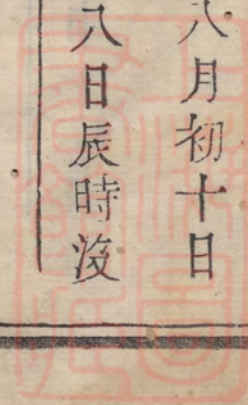 八月初十日
八日辰時没